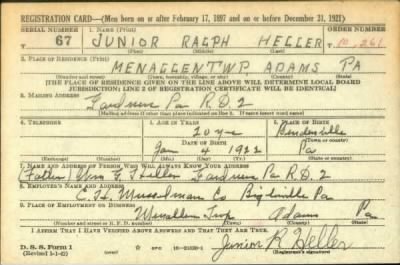 REGISTRATION CARD—(Men born on or after February 17, 1897 and on or before December 31, 1921)
SERIAL NUMBER 1. NAME (Print) ORDER NUMBER
67 JUNIOR RALPH HELLER T 10,261
(First) (Middle) (Last)
2. PLACE OF RESIDENCE (Print)
MENALLEN TWP ADAMS PA
(Number and street) (Town, township, village, or city) (County) (State)
[THE PLACE OF RESIDENCE GIVEN ON THE LINE ABOVE WILL DETERMINE LOCAL BOARD
JURISDICTION; LINE 2 OF REGISTRATION CERTIFICATE WILL BE IDENTICAL]
3. MAILING ADDRESS
Gardners Pa R.D. 2
[Mailing address if other than place indicated on line 2. If same insert word same]
4. TELEPHONE 5. AGE IN YEARS 6. PLACE OF BIRTH
20 yrs Bendersville
DATE OF BIRTH
Jan 4 1922 Pa
(Exchange) (Number) (Mo.) (Day) (Yr.) (State or country)
7. NAME AND ADDRESS OF PERSON WHO WILL ALWAYS KNOW YOUR ADDRESS
Father Wm G Heller Gardners Pa R.D. 2
8. EMPLOYER'S NAME AND ADDRESS
C. H. Musselman Co Biglerville Pa
9. PLACE OF EMPLOYMENT OR BUSINESS
Menallen Twp Adams Pa
(Number and street or R. F. D. number) (Town) (County) (State)
I AFFIRM THAT I HAVE VERIFIED ABOVE ANSWERS AND THAT THEY ARE TRUE.
D. S. S. Form 1
(Revised 1-1-42) (over) 16—21630-1
Junior R Heller
(Registrant's signature)